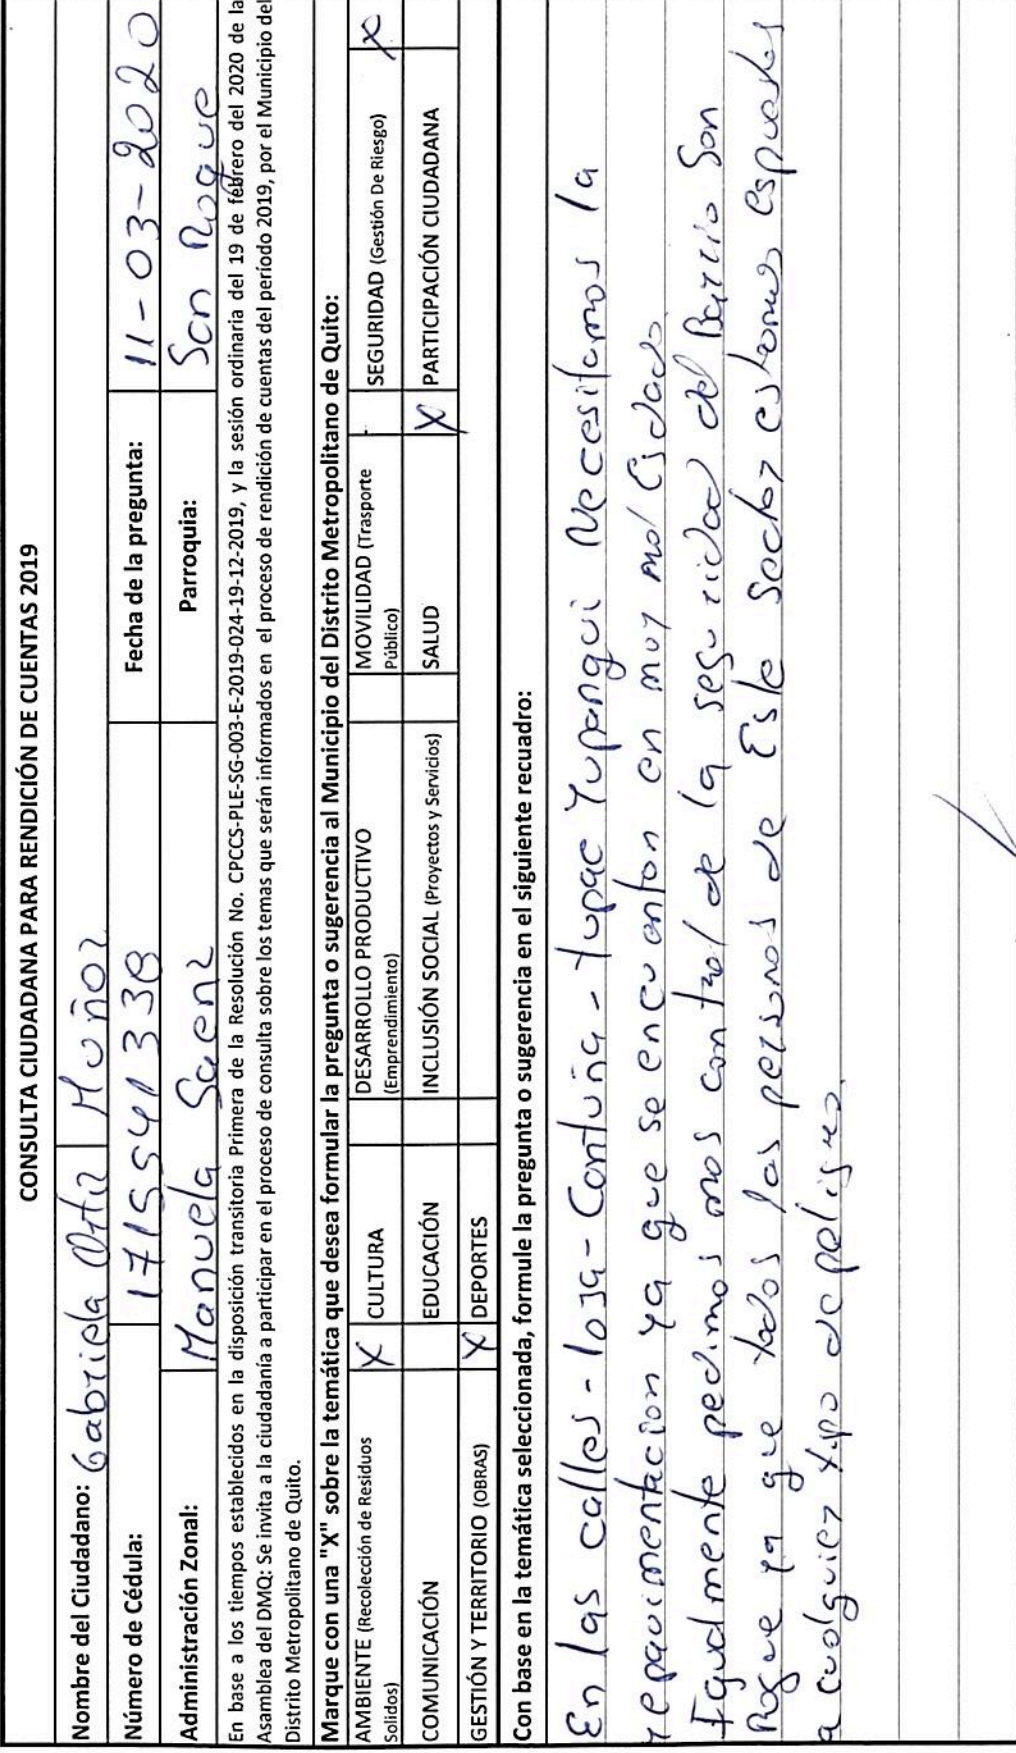 CONSULTA CIUDADANA PARA RENDICIÓN DE CUENTAS 2019
Nombre del Ciudadano: Gabriela Ortiz Muñoz
Número de Cédula: 1715541338 Fecha de la pregunta: 11-03-2020
Administración Zonal: Manuela Saenz Parroquia: San Roque
En base a los tiempos establecidos en la disposición transitoria Primera de la Resolución No. CPCCS-PLE-SG-003-E-2019-024-19-12-2019, y la sesión ordinaria del 19 de febrero del 2020 de la
Asamblea del DMQ: Se invita a la ciudadanía a participar en el proceso de consulta sobre los temas que serán informados en el proceso de rendición de cuentas del período 2019, por el Municipio del
Distrito Metropolitano de Quito.
Marque con una "X" sobre la temática que desea formular la pregunta o sugerencia al Municipio del Distrito Metropolitano de Quito:
AMBIENTE (Recolección de Residuos Solidos) X CULTURA DESARROLLO PRODUCTIVO (Emprendimiento) MOVILIDAD (Trasporte Público) SEGURIDAD (Gestión De Riesgo) X
COMUNICACIÓN EDUCACIÓN INCLUSIÓN SOCIAL (Proyectos y Servicios) SALUD X PARTICIPACIÓN CIUDADANA
GESTIÓN Y TERRITORIO (OBRAS) X DEPORTES
Con base en la temática seleccionada, formule la pregunta o sugerencia en el siguiente recuadro:
En las calles - loja - Contuña - tupac Yupanqui Necesitamos la
repavimentacion ya que se encuentan en muy mal
Igualmente pedimos mas control de la seguridad del Barrio San
Roque ya que todos las personas de Este Sector estamos espuestos
a cualquier tipo de peligro.